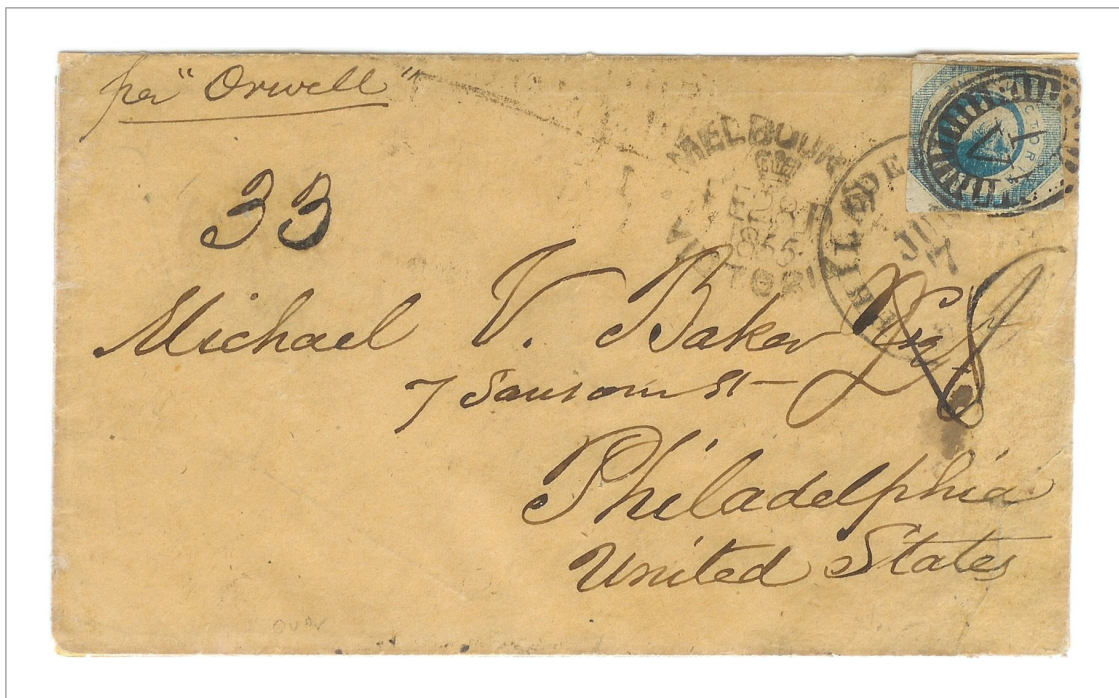 per "Orwell"
MELBOURN
FE 24
1855
VICTORI
PHILADE
JUN
7
1
V
33
Michael V. Baker Esq
7 Sansom St
Philadelphia
United States